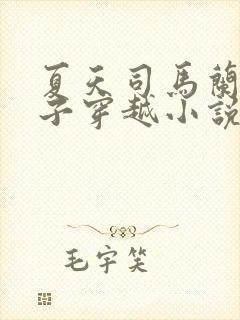 夏天司馬蘭
子穿越小說
毛宇笑